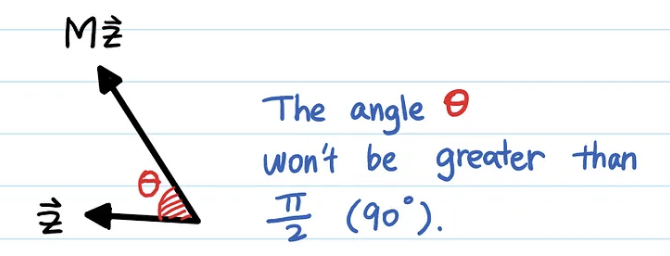 Mz⃗
θ
z⃗
The angle θ
won't be greater than
π/2 (90°).